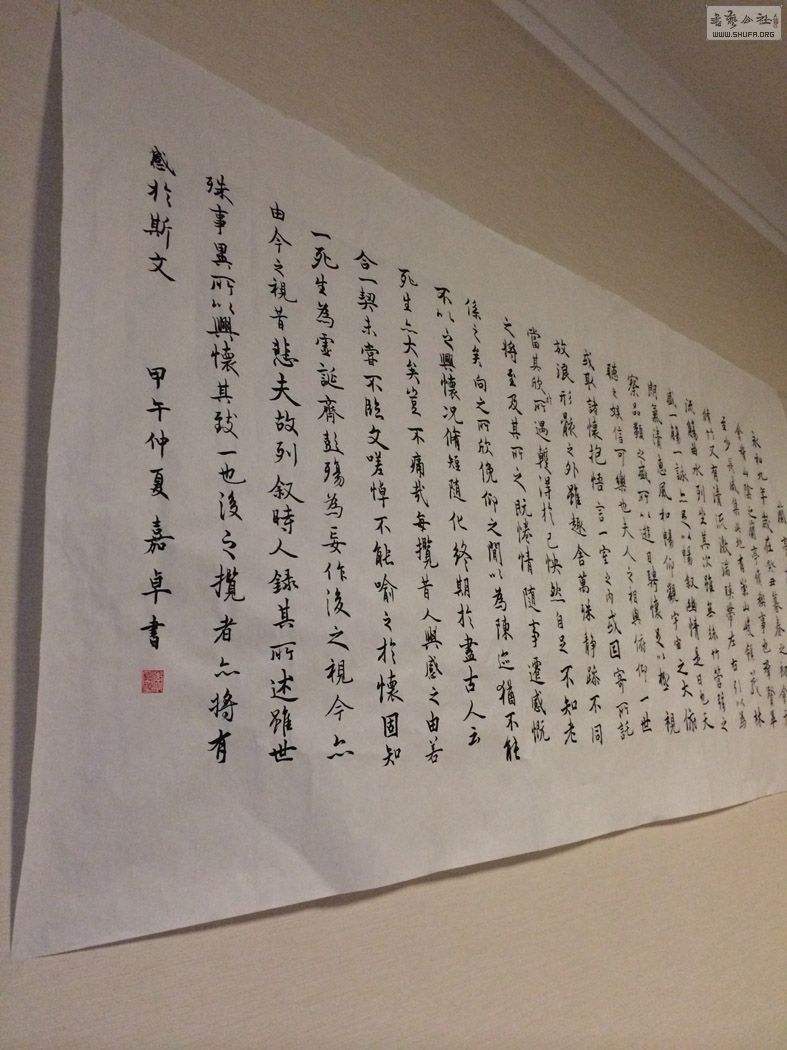 蘭亭
永和九年歲在癸丑暮春之初會于
會稽山陰之蘭亭脩稧事也群賢畢
至少長咸集此地有崇山峻領茂林
脩竹又有清流激湍暎帶左右引以為
流觴曲水列坐其次雖無絲竹管弦之
盛一觴一詠亦足以暢叙幽情是日也天
朗氣清惠風和暢仰觀宇宙之大俯
察品類之盛所以遊目騁懷足以極視
聽之娛信可樂也夫人之相與俯仰一世
或取諸懷抱悟言一室之内或因寄所託
放浪形骸之外雖趣舍萬殊静躁不同
當其欣於所遇蹔得於己快然自足不知老
之將至及其所之既惓情隨事遷感慨
係之矣向之所欣俛仰之間以為陳迹猶不能
不以之興懷况脩短隨化終期於盡古人云
死生亦大矣豈不痛哉每攬昔人興感之由若
合一契未嘗不臨文嗟悼不能喻之於懷固知
一死生為虛誕齊彭殤為妄作後之視今亦
由今之視昔悲夫故列叙時人録其所述雖世
殊事異所以興懷其致一也後之攬者亦將有
感於斯文 甲午仲夏嘉卓書
書藝公社
WWW.SHUFA.ORG